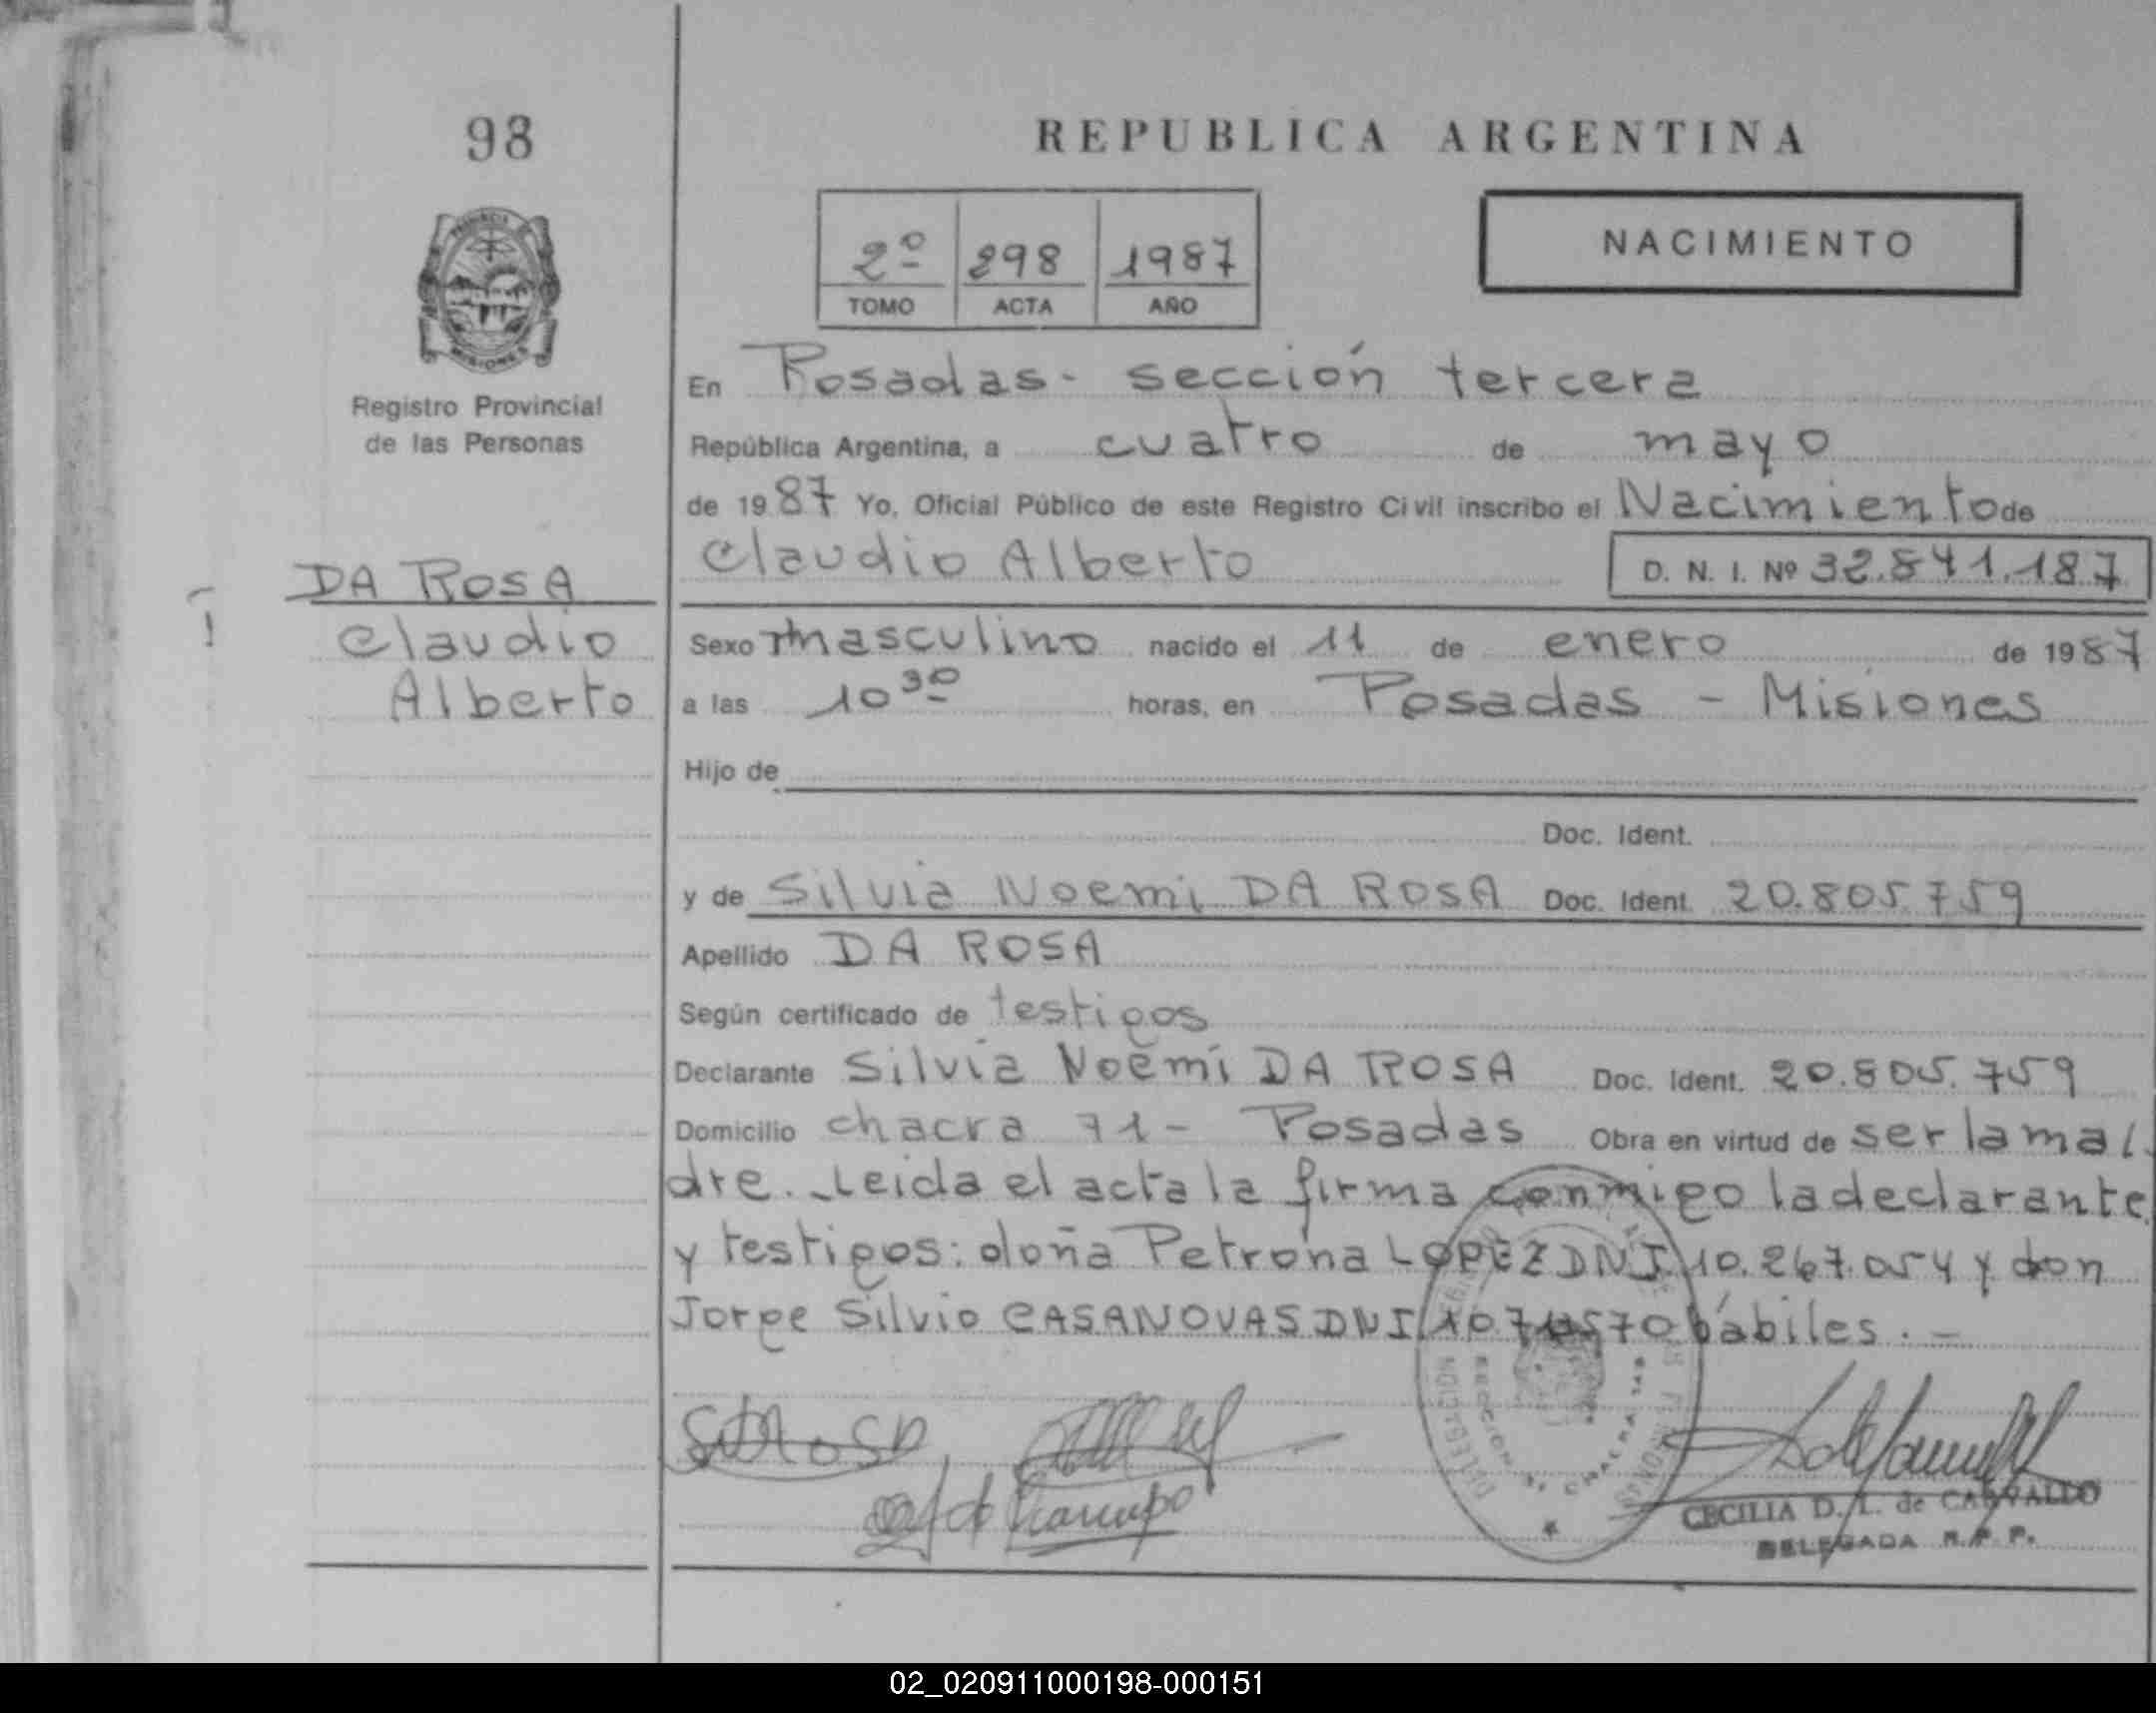 98
REPUBLICA ARGENTINA
2º 298 1987
TOMO ACTA AÑO
NACIMIENTO
PROVINCIA DE
MISIONES
Registro Provincial
de las Personas
En Posadas - sección tercera
República Argentina, a cuatro de mayo
de 1987 Yo, Oficial Público de este Registro Civil inscribo el Nacimiento de
Claudio Alberto D. N. I. Nº 32.841.187
DA ROSA
Claudio
Alberto
Sexo masculino nacido el 11 de enero de 1987
a las 10 30 horas, en Posadas - Misiones
Hijo de
Doc. Ident.
y de Silvia Noemi DA ROSA Doc. Ident. 20.805.759
Apellido DA ROSA
Según certificado de testigos
Declarante Silvia Noemí DA ROSA Doc. Ident. 20.805.759
Domicilio chacra 71 - Posadas Obra en virtud de ser la ma
dre. Leida el acta la firma conmigo la declarante
y testigos: doña Petrona LOPEZ DNI 10.267.054 y don
Jorge Silvio CASANOVAS DNI hábiles. -
CECILIA D. L. de CARVALLO
DELEGADA R. P. P.
02_020911000198-000151